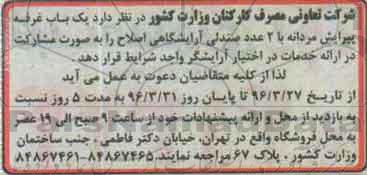 شرکت تعاونی مصرف کارکنان وزارت کشور در نظر دارد یک باب غرفه
پیرایش مردانه با ۲ عدد صندلی آرایشگاهی اصلاح را به صورت مشارکت
در ارائه خدمات در اختیار آرایشگر واجد شرایط قرار دهد.
لذا از کلیه متقاضیان دعوت به عمل می آید
از تاریخ ۹۶/۳/۲۷ تا پایان روز ۹۶/۳/۳۱ به مدت ۵ روز نسبت
به بازدید از محل و ارائه پیشنهادات خود از ساعت ۹ صبح الی ۱۹ عصر
به محل فروشگاه واقع در تهران، خیابان دکتر فاطمی، جنب ساختمان
وزارت کشور، پلاک ۶۷ مراجعه نمایند. ۸۴۸۶۷۴۶۵-۸۴۸۶۷۴۶۱